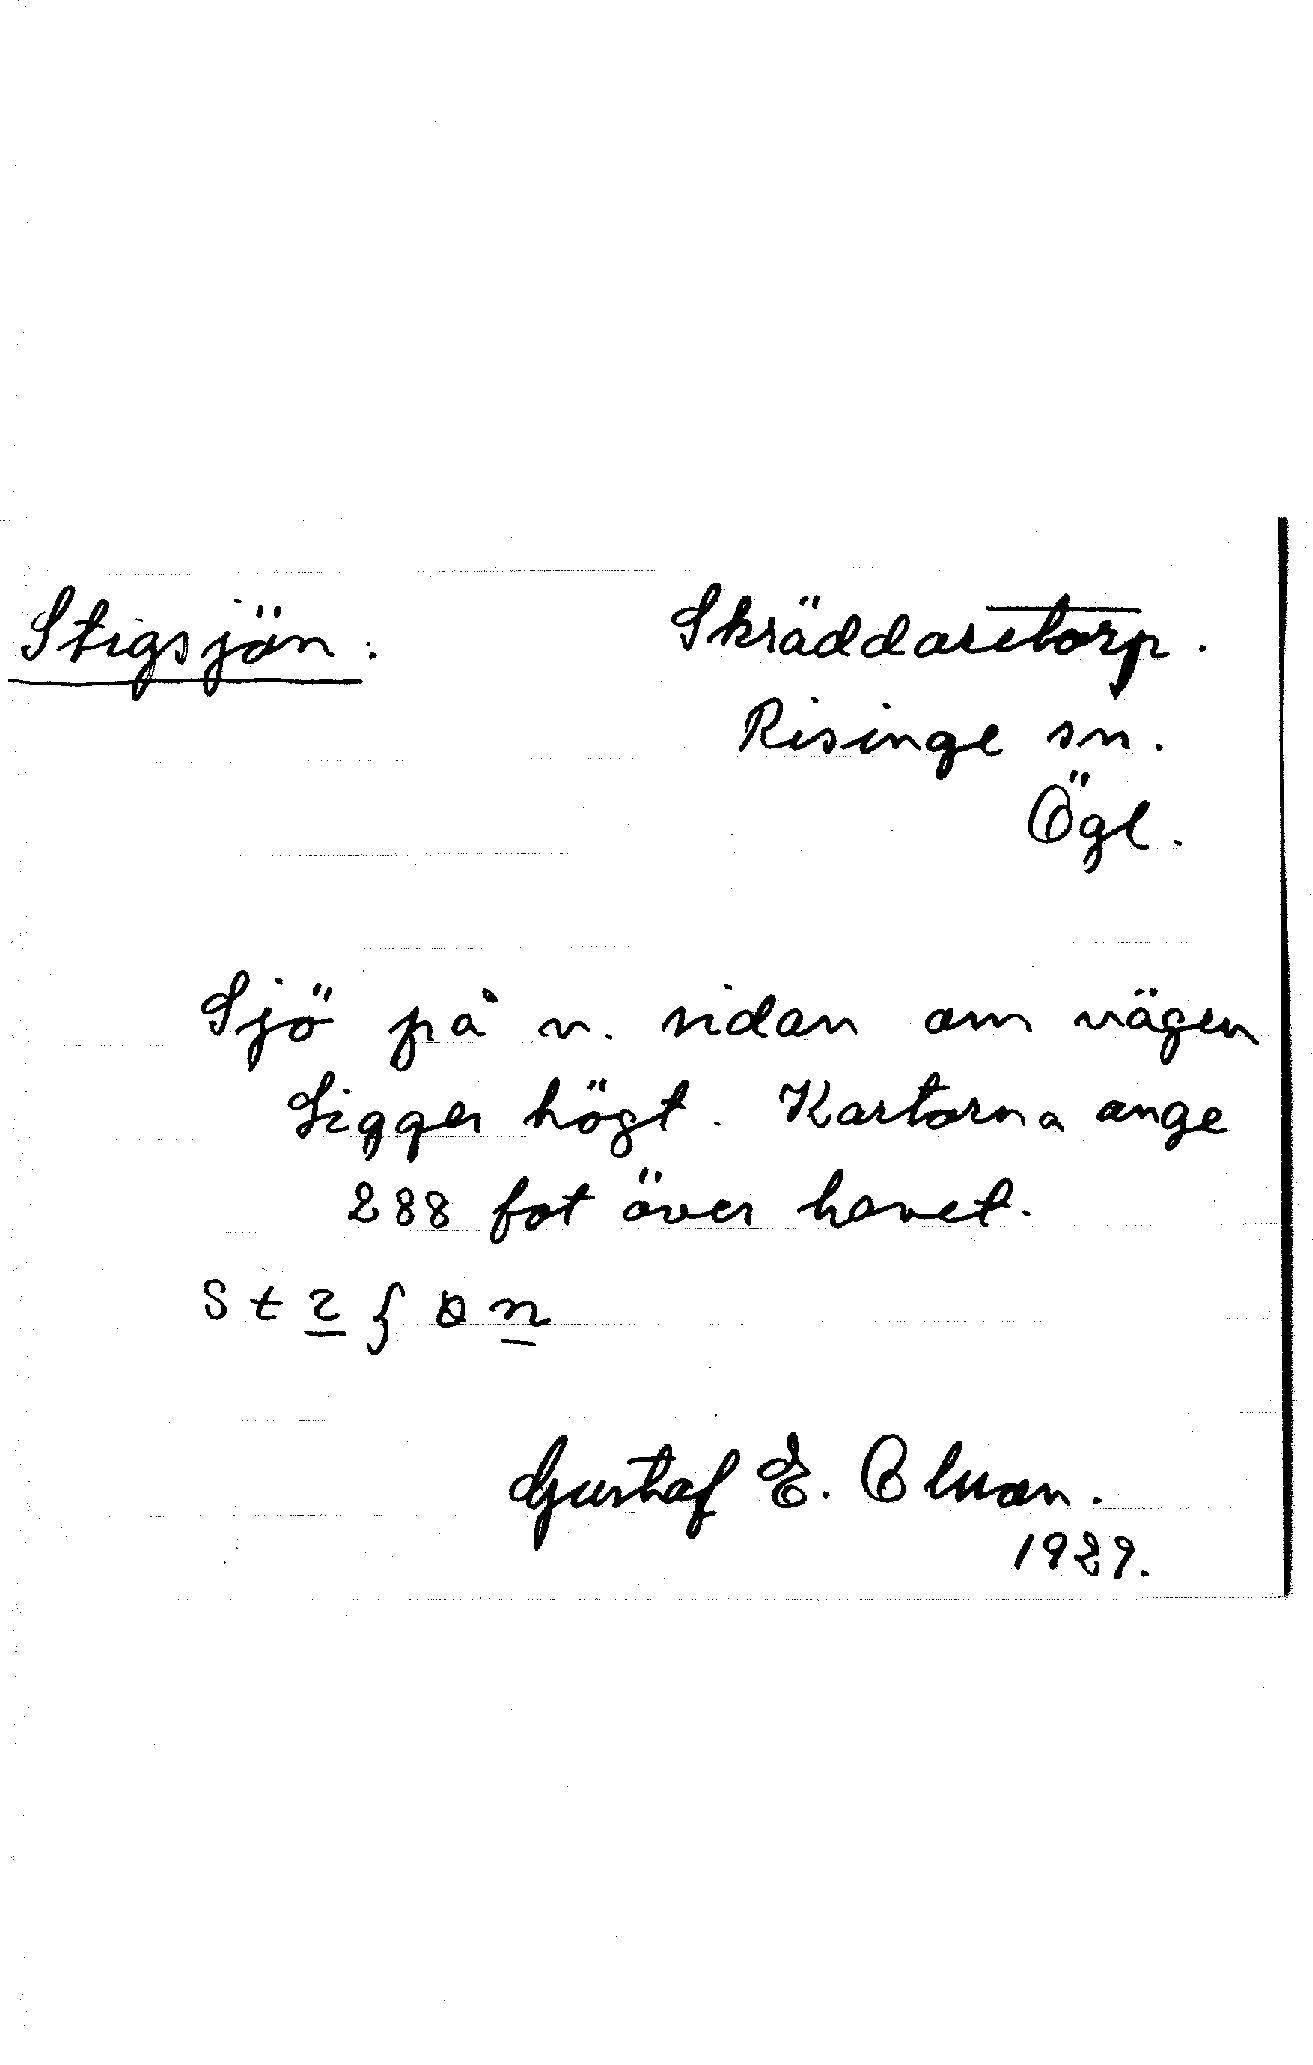 Stigsjön.
Skräddaretorp.
Risinge sn.
Ögl.
Sjö på v. sidan om vägen
Ligger högt. Kartorna ange
288 fot över havet.
Gustaf E. Olsson.
1929.